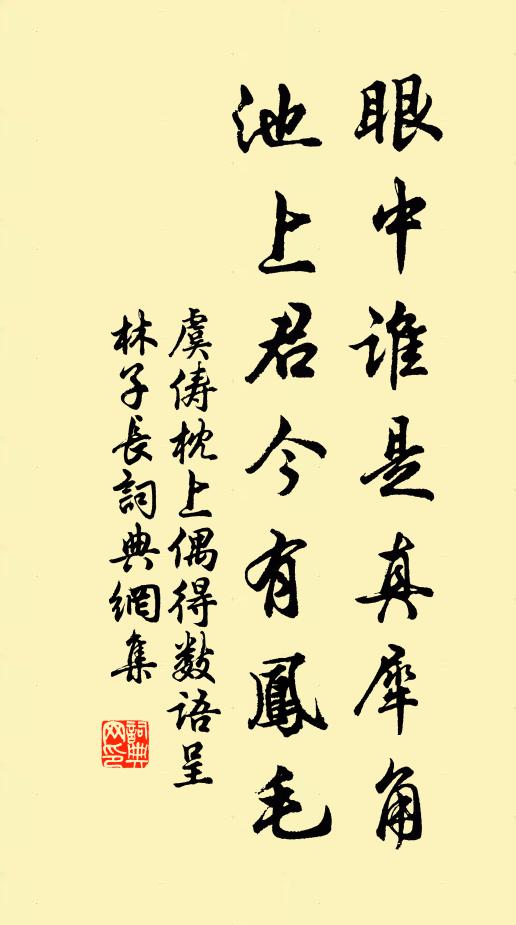 眼中谁是真犀角
池上君今有鳳毛
虞俦枕上偶得数语呈
林子長詞典網集
詞典网印